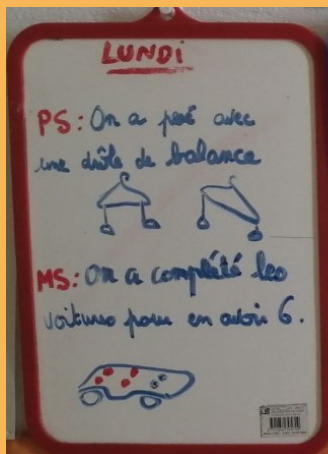 LUNDI
PS: On a pesé avec
une drôle de balance
MS: On a complété les
voitures pour en avoir 6.